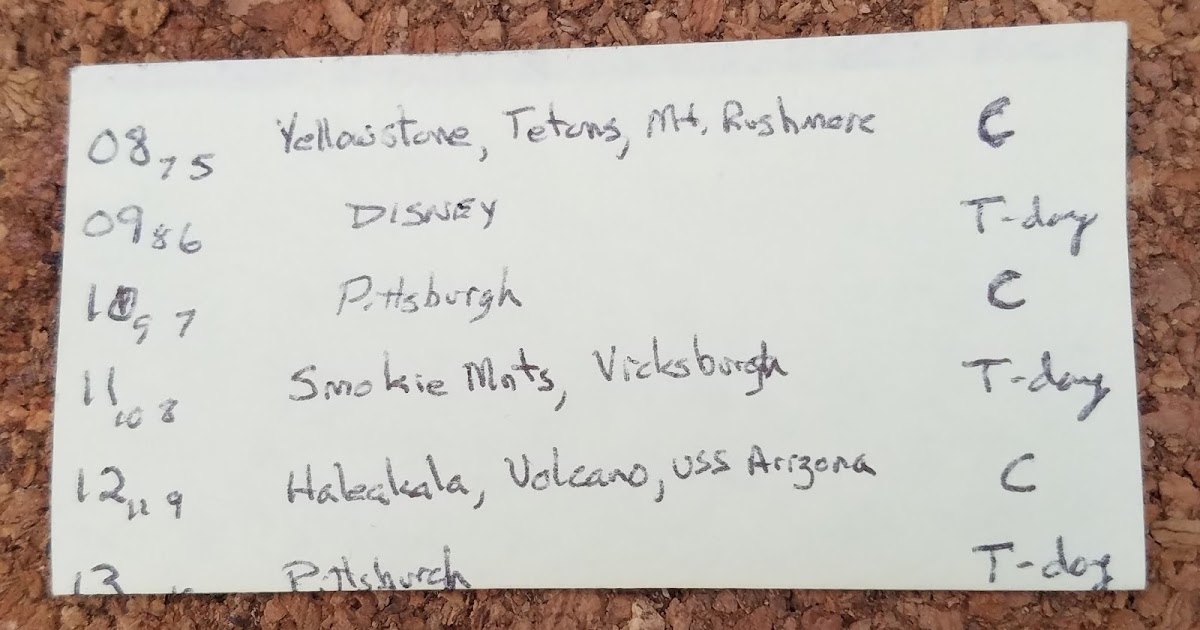 08 7 5 Yellowstone, Tetons, Mt. Rushmore C
09 8 6 DISNEY T-day
10 9 7 Pittsburgh C
11 10 8 Smokie Mnts, Vicksburgh T-day
12 11 9 Haleakala, Volcano, USS Arizona C
13 Pittsburgh T-day